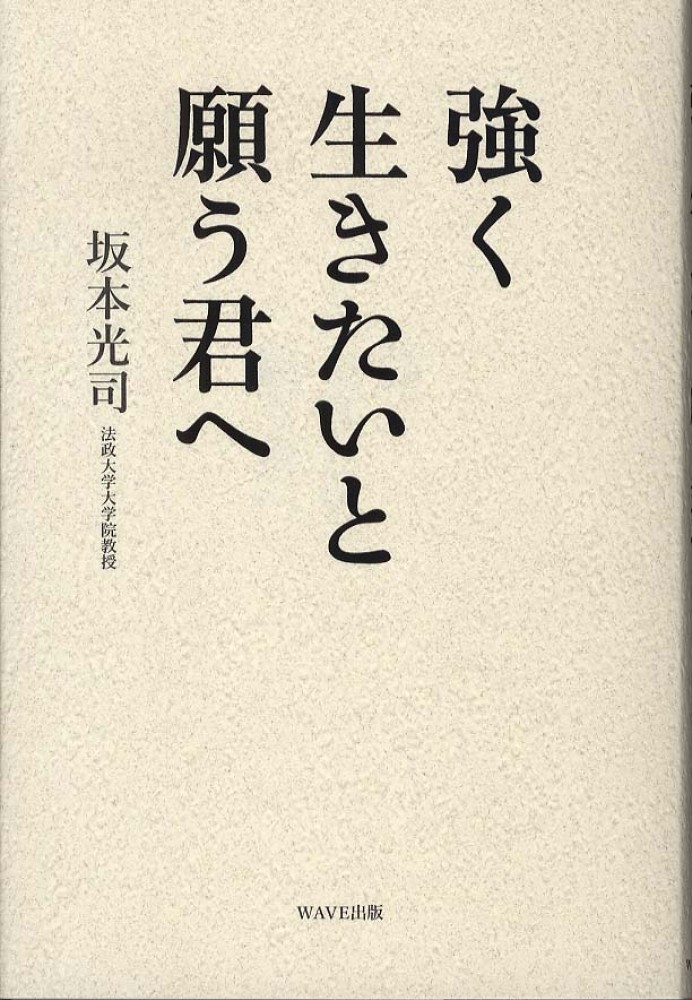 強く
生きたいと
願う君へ
坂本光司
法政大学大学院教授
WAVE出版